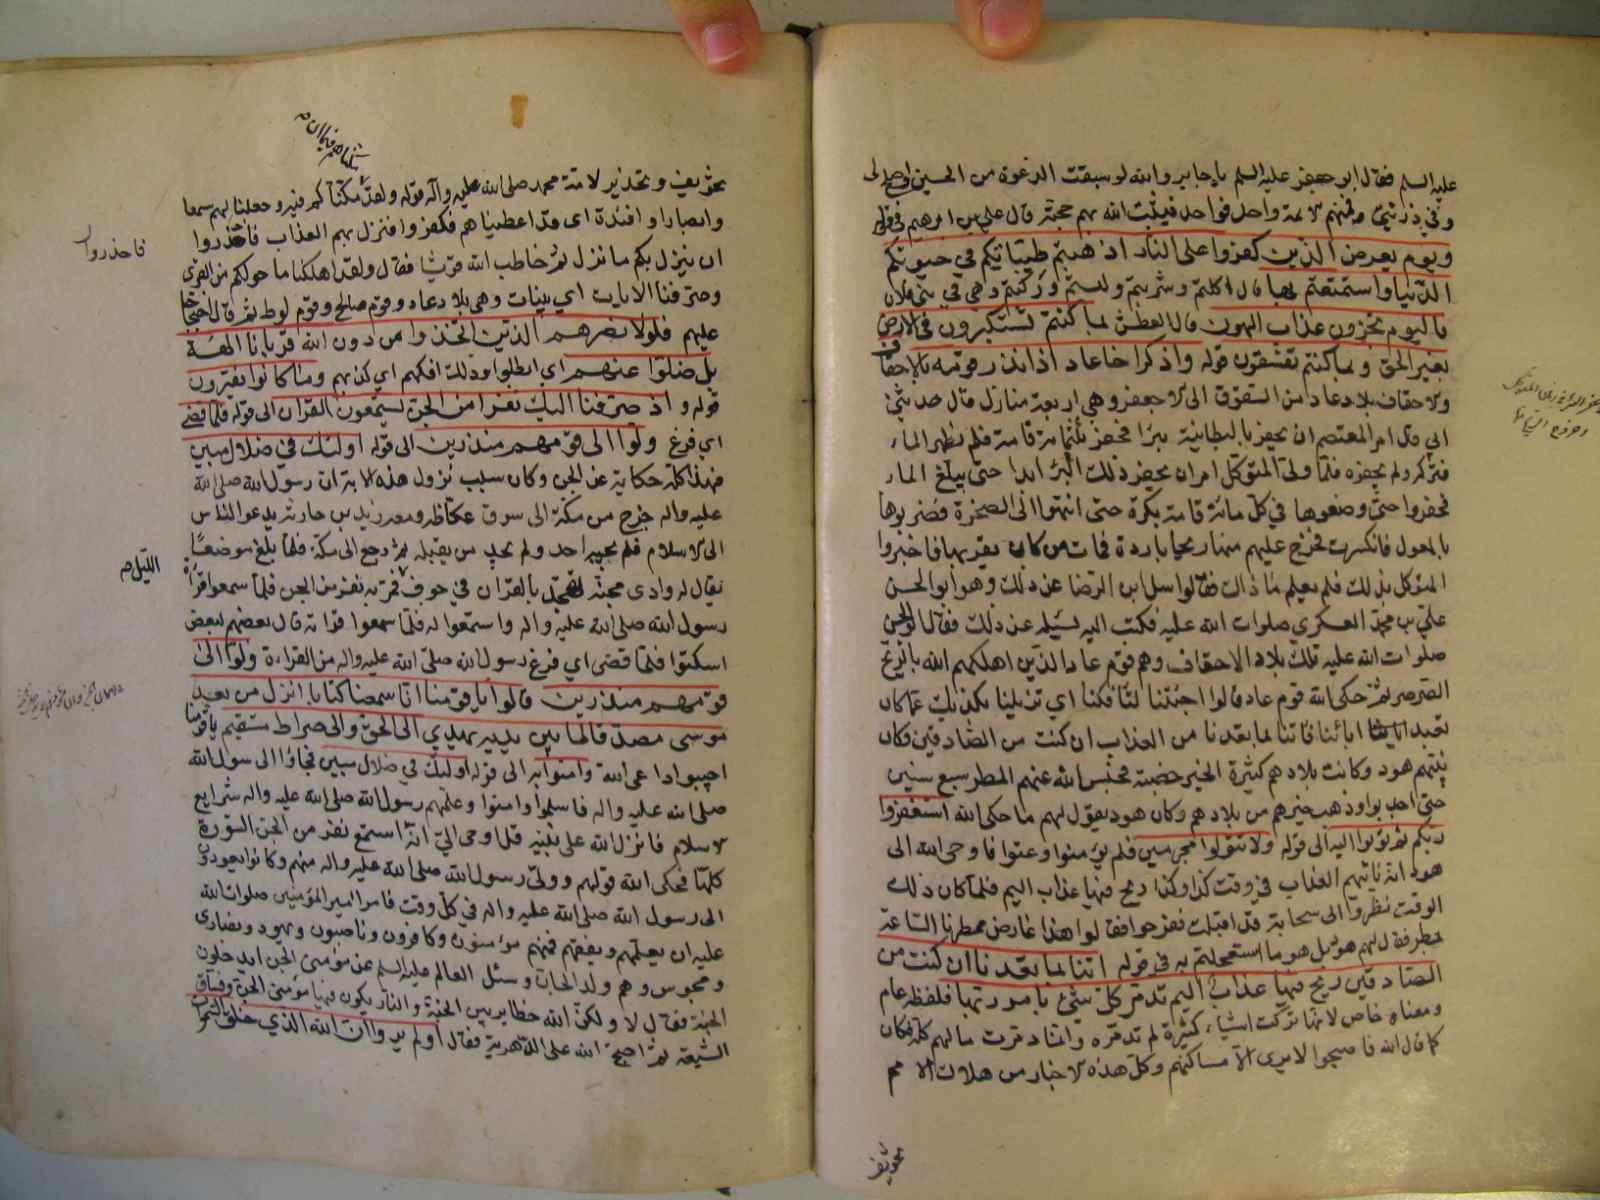 عليه السلم فقال ابو جعفر عليه السلم يا جابر والله لو سبقت الدعوة من الحسين
وفي ذريتي فمنهم الائمة واحد فواحد فيثبت الله بهم حجته قال علي بن ابرهيم في قوله
ويوم يعرض الذين كفروا على النار اذهبتم طيباتكم في حيوتكم
الدنيا واستمتعتم بها قال اكلتم وشربتم ولبستم وركبتم وهي في بني فلان
فاليوم تجزون عذاب الهون قال العطش بما كنتم تستكبرون في الارض
بغير الحق وبما كنتم تفسقون قوله واذكر اخا عاد اذ انذر قومه بالاحقاف
والاحقاف بلاد عاد من الشقوق الى الاجفر وهي اربعة منازل قال حدثني
ابي قال امر المعتصم ان يحفر بالبطاينة بئرا فحفر ثلثمائة قامة فلم يظهر الماء
فتركه ولم يحفره فلما ولي المتوكل امر ان يحفر ذلك البئر ابدا حتى يبلغ الماء
فحفروا حتى وضعوا في كل مائة قامة بكرة حتى انتهوا الى الصخرة فضربوها
بالمعول فانكسرت فخرج عليهم منها ريحا باردة فمات من كان بقربها فاخبروا
المتوكل بذلك فلم يعلم ما ذاك فقالوا سل ابن الرضا عن ذلك وهو ابو الحسن
علي بن محمد العسكري صلوات الله عليه فكتب اليه يسئله عن ذلك فقال ابو الحسن
صلوات الله عليه تلك بلاد الاحقاف وهم قوم عاد الذين اهلكهم الله بالريح
الصرصر ثم حكى الله قوم عاد قالوا اجئتنا لتافكنا اي تزيلنا بكذبك عما كان
يعبد ابائنا فاتنا بما تعدنا من العذاب ان كنت من الصادقين وكان
نبيهم هود وكانت بلادهم كثيرة الخير خصبة فحبس الله عنهم المطر سبع سنين
حتى اجدبوا وذهب خيرهم من بلادهم وكان هود يقول لهم ما حكى الله استغفروا
ربكم ثم توبوا اليه الى قوله ولا تتولوا مجرمين فلم يؤمنوا وعتوا فاوحى الله الى
هود انه ياتيهم العذاب في وقت كذا وكذا ريح فيها عذاب اليم فلما كان ذلك
الوقت نظروا الى سحابة قد اقبلت ففرحوا فقالوا هذا عارض ممطرنا الساعة
نمطر فقال لهم هود بل هو ما استعجلتم به في قوله اتنا بما تعدنا ان كنت من
الصادقين ريح فيها عذاب اليم تدمر كل شئ بامر ربها فلفظه عام
ومعناه خاص لانها تركت اشياء كثيرة لم تدمره وانما دمرت مالهم كله فكان
كما قال الله فاصبحوا لا يرى الا مساكنهم وكل هذه الاخبار من هلاك الامم
تخويف
تخويف وتحذير لامة محمد صلى الله عليه وآله قوله ولقد مكناكم فيه وجعلنا لهم سمعا
وابصارا وافئدة اي قد اعطيناهم فكفروا فنزل بهم العذاب فاحذروا
فاحذروا
ان ينزل بكم ما نزل ثم خاطب الله قريشا فقال ولقد اهلكنا ما حولكم من القرى
وصرفنا الايات اي بينات وهي بلاد عاد وقوم صالح وقوم لوط ثم قال احتجاجا
عليهم فلولا نصرهم الذين اتخذوا من دون الله قربانا الهة
بل ضلوا عنهم اي ابطلوا وذلك افكهم اي كذبهم وما كانوا يفترون
قوله واذ صرفنا اليك نفرا من الجن يستمعون القران الى قوله فلما قضي
اي فرغ ولوا الى قومهم منذرين الى قوله اولئك في ضلال مبين
فهذا كله حكاية عن الجن وكان سبب نزول هذه الاية ان رسول الله صلى الله
عليه واله خرج من مكة الى سوق عكاظ ومعه زيد بن حارثة يدعو الناس
الى الاسلام فلم يجبه احد ولم يجد من يقبله ثم رجع الى مكة فلما بلغ موضعا
يقال له وادى مجنة تهجد بالقران في جوف فمر به نفر من الجن فلما سمعوا قراءة
الليل
رسول الله صلى الله عليه واله واستمعوا له فلما سمعوا قرائة قال بعضهم لبعض
اسكتوا فلما قضى اي فرغ رسول الله صلى الله عليه واله من القراءة ولوا الى
قومهم منذرين قالوا يا قومنا انا سمعنا كتابا انزل من بعد
موسى مصدقا لما بين يديه يهدي الى الحق والى صراط مستقيم يا قومنا
اجيبوا داعى الله وامنوا به الى قوله اولئك في ضلال مبين فجاؤا الى رسول الله
صلى الله عليه واله فاسلموا وامنوا وعلمهم رسول الله صلى الله عليه واله شرايع
الاسلام فانزل الله على نبيه قل اوحى الي انه استمع نفر من الجن السورة
كلها فحكى الله قولهم وولى رسول الله صلى الله عليه واله منهم وكانوا يعودون
الى رسول الله صلى الله عليه واله في كل وقت فامر امير المؤمنين صلوات الله
عليه ان يعلمهم ويفقههم فمنهم مؤمنون وكافرون وناصبون ويهود ونصارى
ومجوس وهم ولد الجان وسئل العالم عليه السلم عن مؤمنى الجن ايدخلون
الجنة فقال لا ولكن الله حظاير بين الجنة والنار يكون فيها مؤمنى الجن وفساق
الشيعة ثم احتج الله على الدهرية فقال اولم يروا ان الله الذي خلق السموات